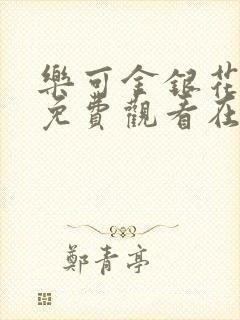 樂可金銀花
免費觀看在
鄭青亭